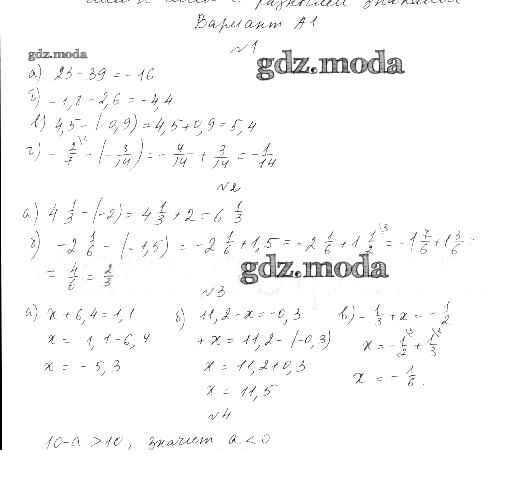 Вариант А1
№1
gdz.moda
gdz.moda
а) 23 - 39 = - 16
б) - 1,8 - 2,6 = - 4,4
в) 4,5 - (- 0,9) = 4,5 + 0,9 = 5,4
г) - 2/7 \2 - (- 3/14) = - 4/14 + 3/14 = - 1/14
№2
а) 4 1/3 - (-2) = 4 1/3 + 2 = 6 1/3
б) - 2 1/6 - (- 1,5) = - 2 1/6 + 1,5 = - 2 1/6 + 1 1/2 \3 = - 1 7/6 + 1 3/6 =
= 4/6 = 2/3
gdz.moda
№3
а) x + 6,4 = 1,1
x = 1,1 - 6,4
x = - 5,3
б) 11,2 - x = - 0,3
+ x = 11,2 - (- 0,3)
x = 11,2 + 0,3
x = 11,5
в) - 1/3 + x = - 1/2
x = - 1/2 \3 + 1/3 \2
x = - 1/6.
№4
10 - a > 10, значит a < 0